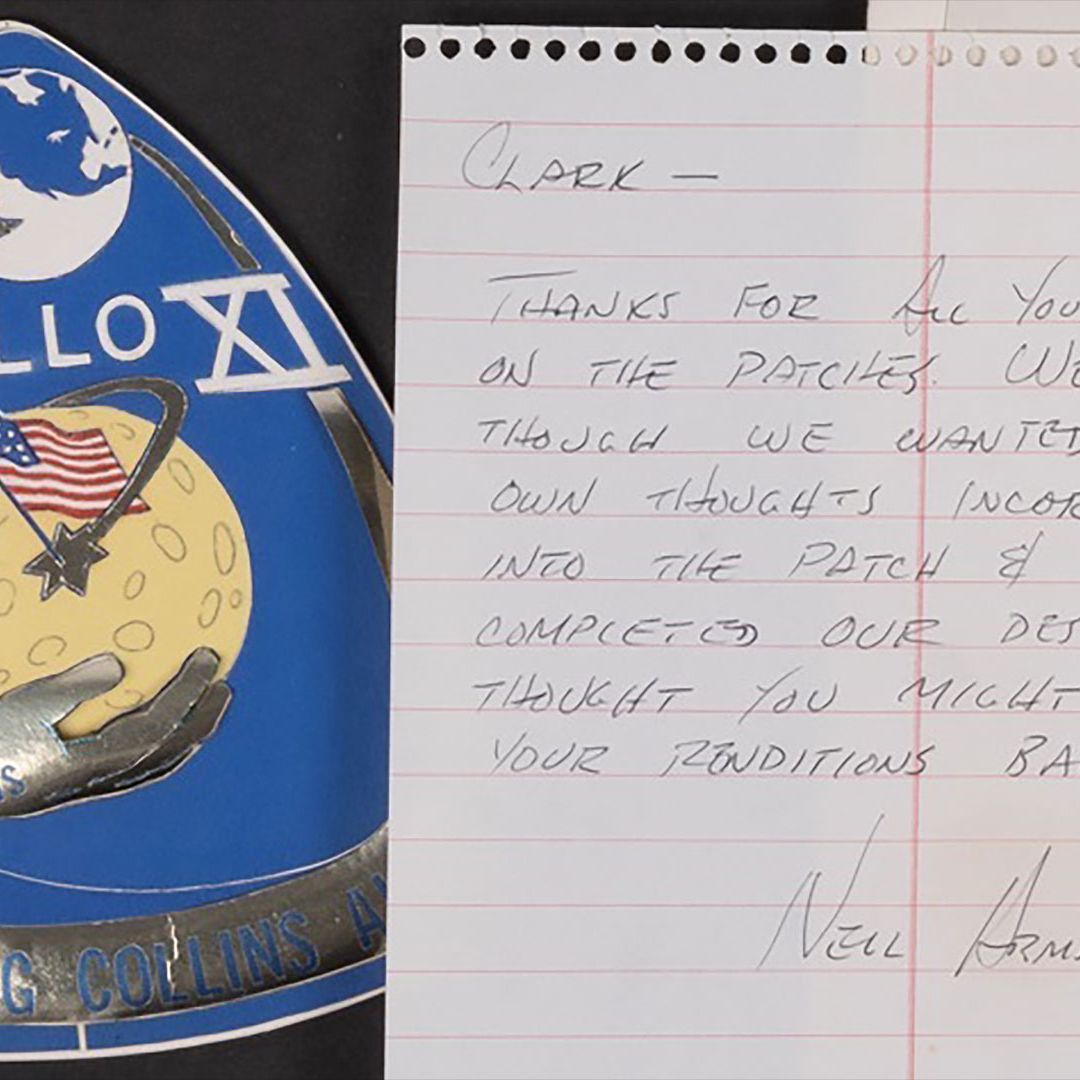 LLO XI
G COLLINS A
CLARK —
THANKS FOR ALL YOU
ON THE PATCHES. WE
THOUGH WE WANTED
OWN THOUGHTS INCOR
INTO THE PATCH &
COMPLETED OUR DES
THOUGHT YOU MIGHT
YOUR RENDITIONS BA
NEIL ARMS